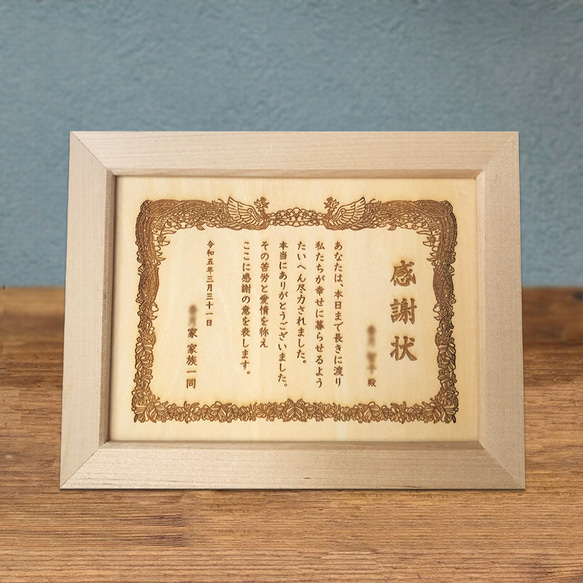 感謝状
殿
あなたは、本日まで長きに渡り
私たちが幸せに暮らせるよう
たいへん尽力されました。
本当にありがとうございました。
その苦労と愛情を称え
ここに感謝の意を表します。
令和五年三月三十一日
家 家族一同